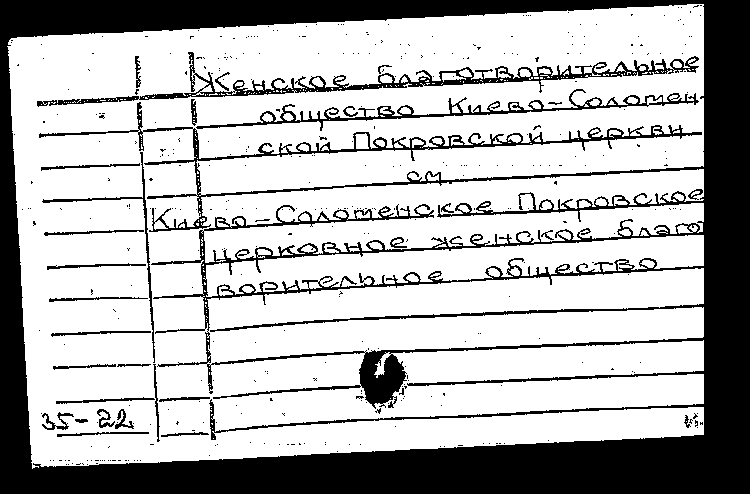 Женское благотворительное
общество Киево-Соломен-
ской Покровской церкви
см.
Киево-Соломенское Покровское
церковное женское благот
ворительное общество
35-22.